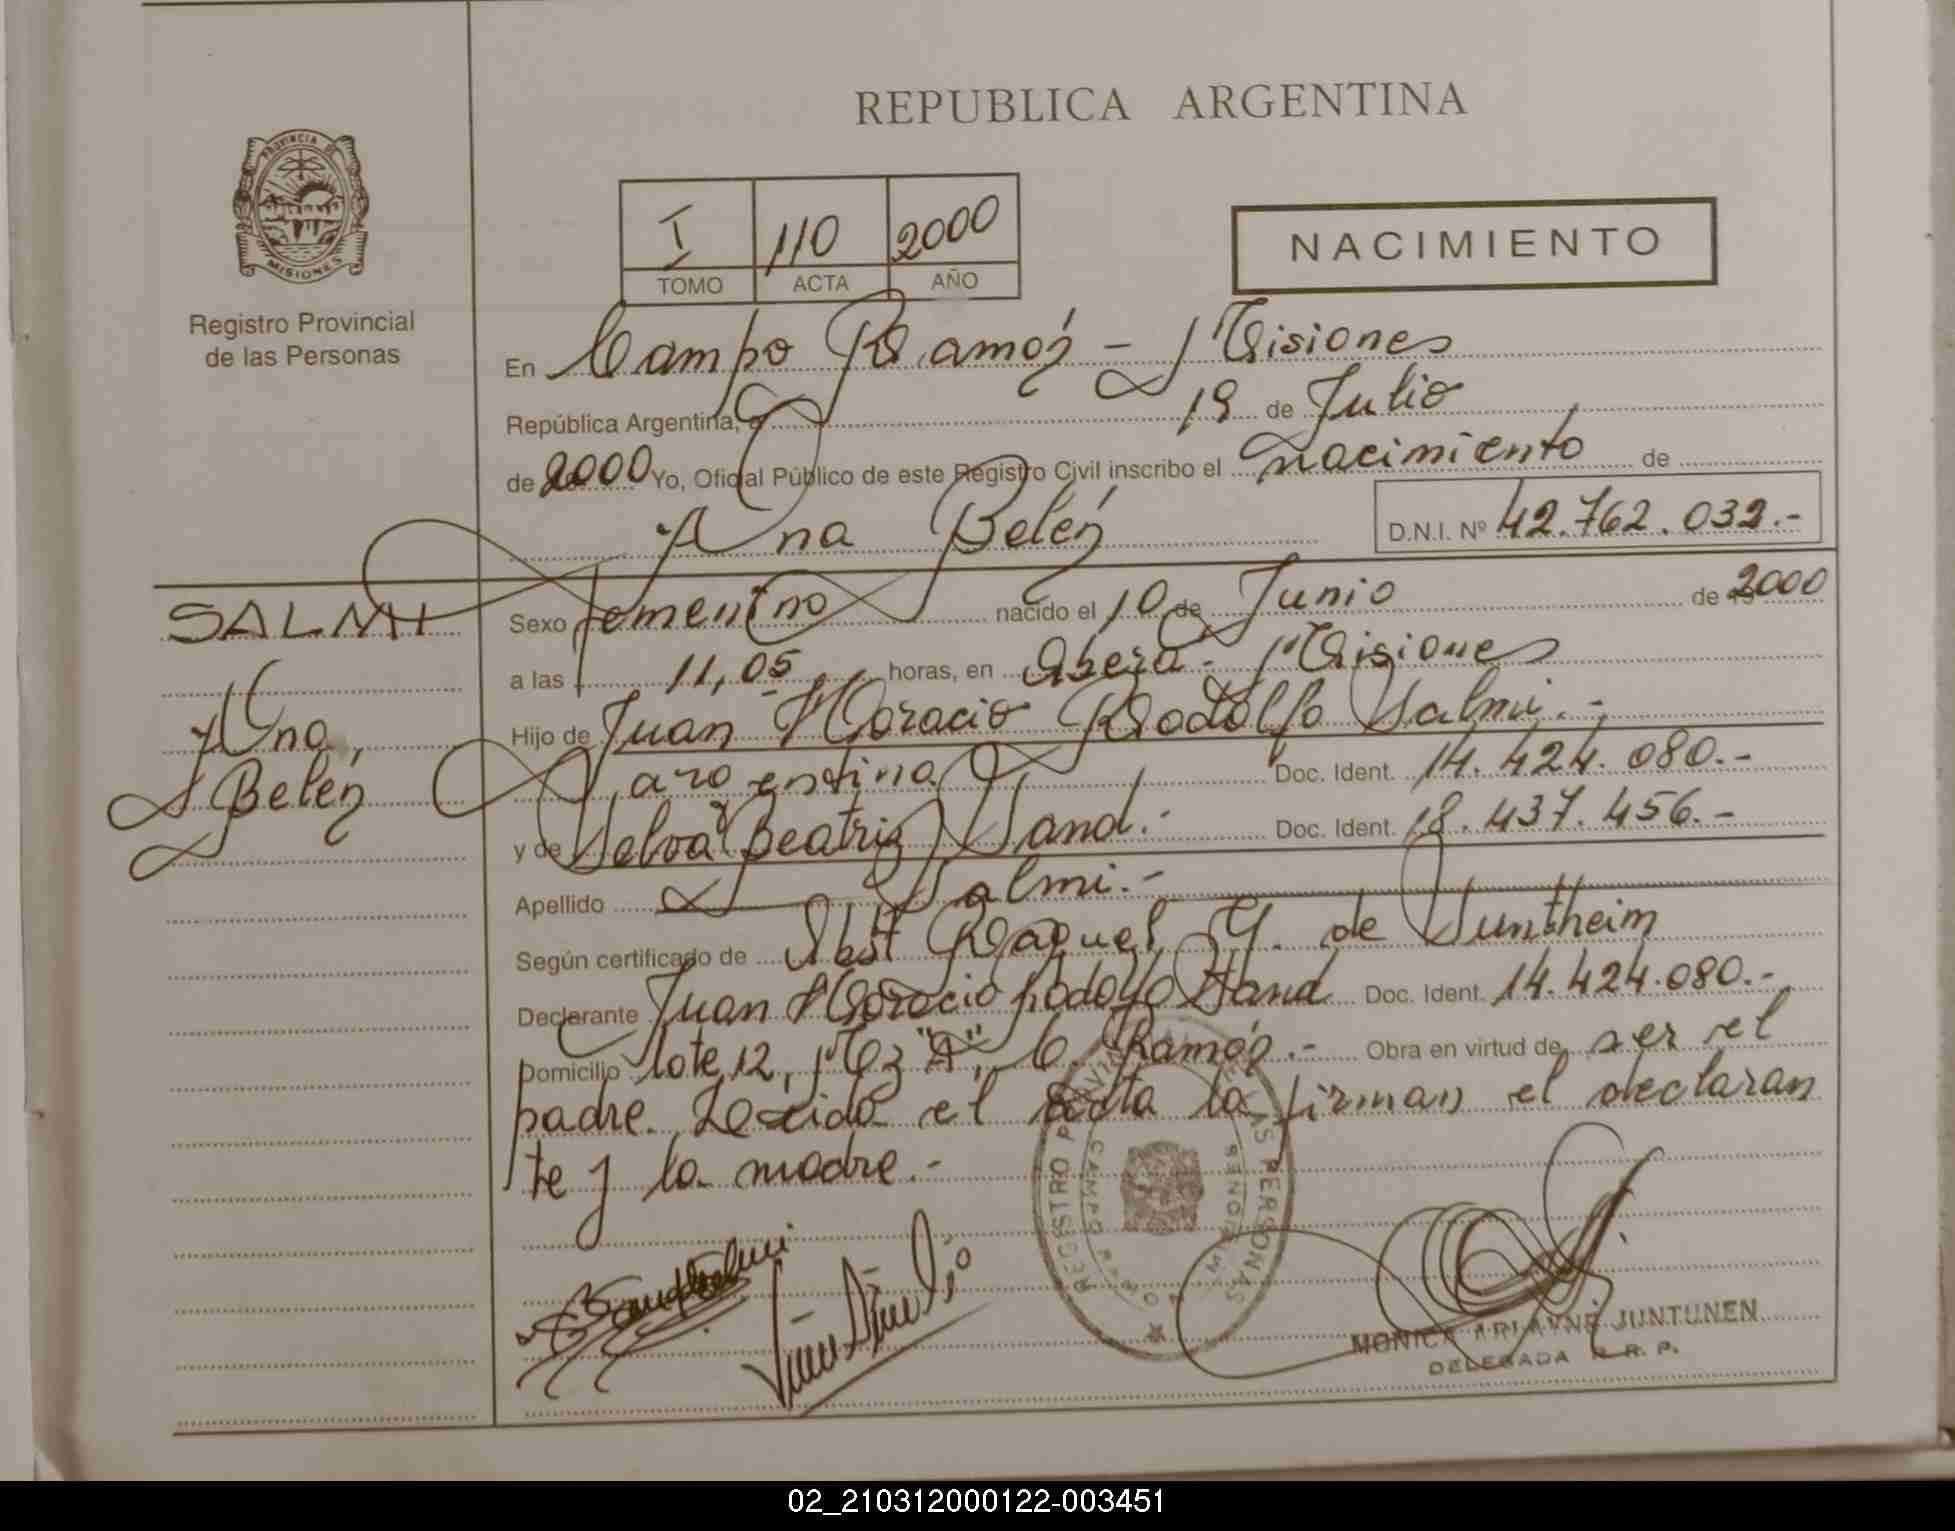 REPUBLICA ARGENTINA
PROVINCIA DE
MISIONES
Registro Provincial
de las Personas
I 110 2000
TOMO ACTA AÑO
NACIMIENTO
En Campo Ramón - Misiones
República Argentina, a 19 de Julio
de 2000 Yo, Oficial Público de este Registro Civil inscribo el nacimiento de
Ana Belén D.N.I. Nº 42.762.032.-
SALMI
Ana
Belén
Sexo femenino nacido el 10 de Junio de 2000
a las 11,05 horas, en Oberá - Misiones
Hijo de Juan Horacio Rodolfo Salmi.-
argentina Doc. Ident. 14.424.080.-
y de Selva Beatriz Sand.- Doc. Ident. 18.437.456.-
Apellido Salmi.-
Según certificado de Obst Raquel Y. de Suntheim
Declarante Juan Horacio Rodolfo Sand Doc. Ident. 14.424.080.-
Domicilio Lote 12, Mz "A", C. Ramón.- Obra en virtud de ser el
padre. Leída el acta la firman el declaran
te y la madre.-
REGISTRO PERSONAS
CAMPO
MISIONES
MONICA ARIANNE JUNTUNEN
DELEGADA R. R. P.
02_210312000122-003451